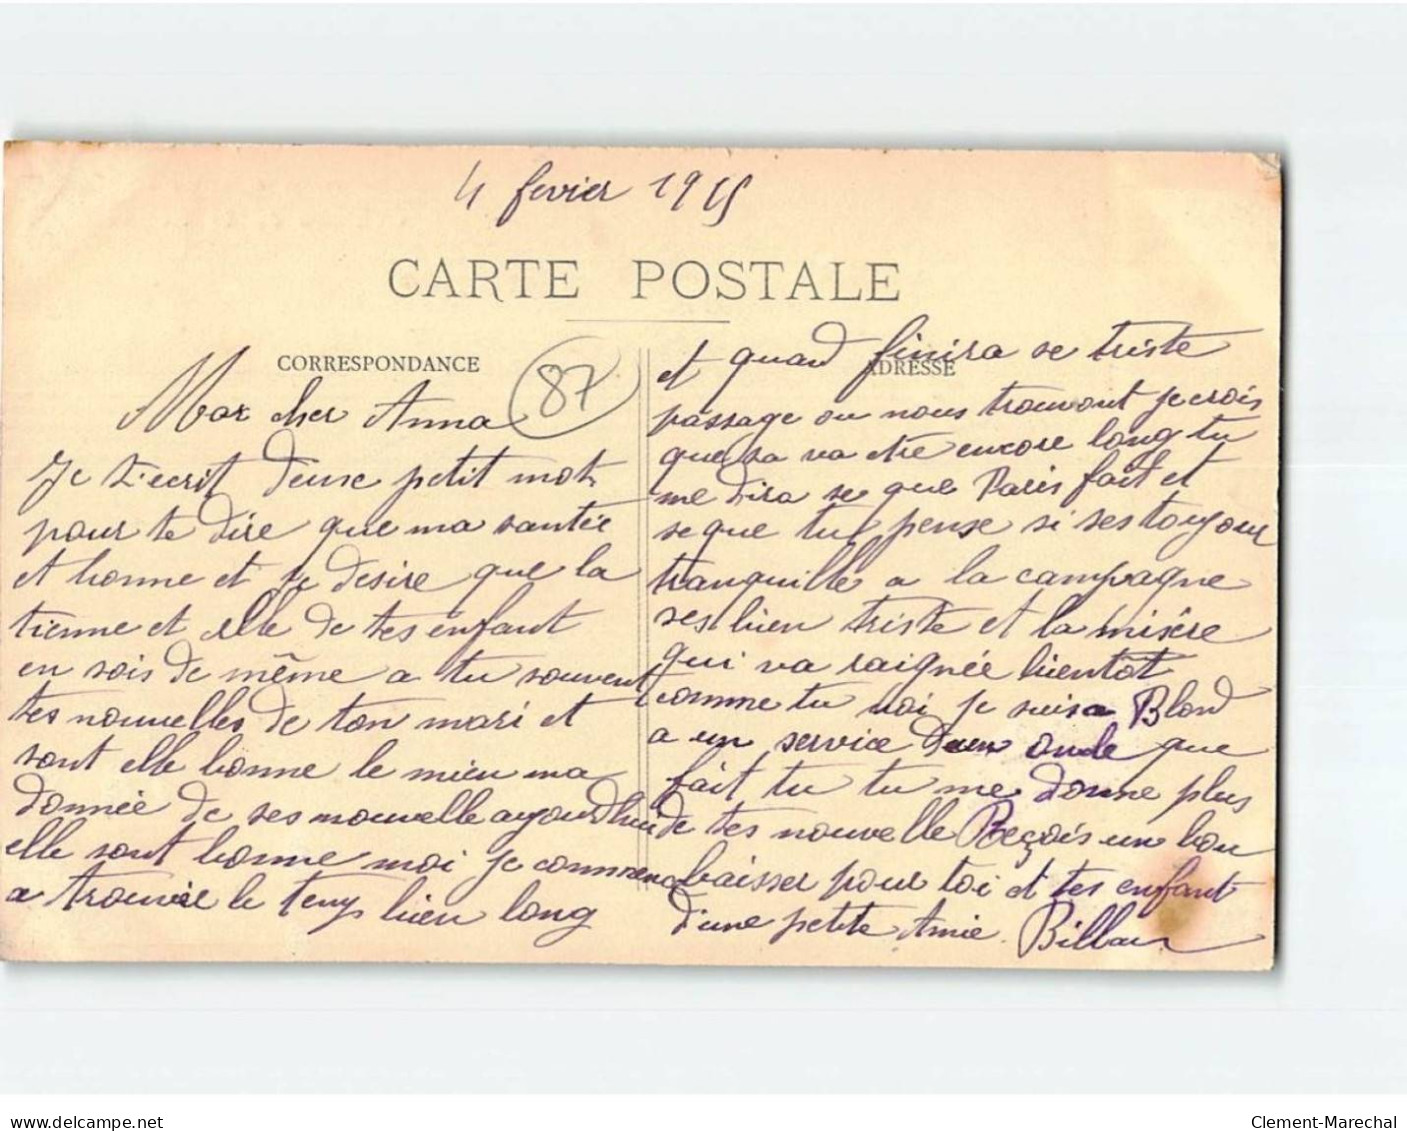 4 fevier 1915
CARTE POSTALE
CORRESPONDANCE
87
Mar cher Anna
Je t'ecrit d'eune petit mot
pour te dire que ma santée
et bonne et je desire que la
tienne et elle de tes enfant
en sois de même a tu souvent
tes nouvelles de ton mari et
sont elle bonne le mien ma
donnée de ses nouvelle aujourd'hui
elle sont bonne moi je commence
a trouvée le temps bien long
ADRESSE
et quand finira se triste
passage ou nous trouvont je crois
que sa va etre encore long tu
me dira se que Paris fait et
se que tu pense si ses toujour
tranquille a la campagne
ses bien triste et la misère
qui va raignée bientot
comme tu voi je suis a Blond
a un service d'un oncle que
fait tu tu me donne plus
de tes nouvelle Reçois un bon
baisser pour toi et tes enfant
d'une petite Amie
delcampe.net
Clement-Marechal